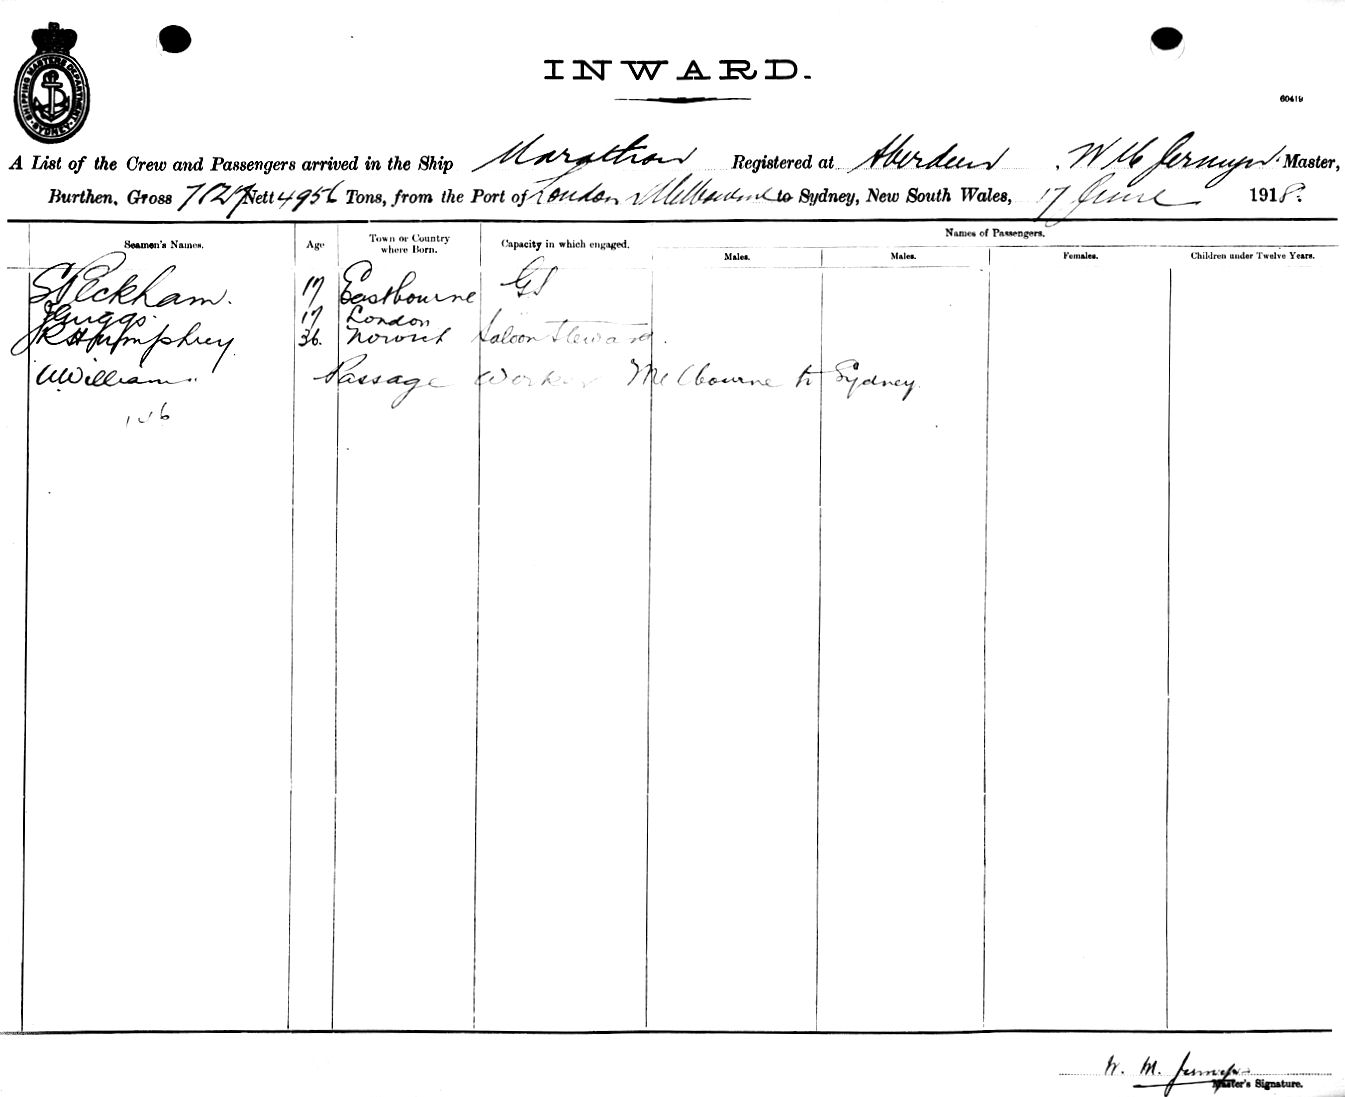 INWARD.
60419
SHIPPING MASTERS DEPARTMENT SYDNEY
A List of the Crew and Passengers arrived in the Ship Marathon Registered at Aberdeen W M Jermyn Master,
Burthen, Gross 7827 Nett 4956 Tons, from the Port of London & Melbourne to Sydney, New South Wales, 17 June 1918.
Names of Passengers.
Seamen's Names. Age Town or Country where Born. Capacity in which engaged. Males. Males. Females. Children under Twelve Years.
S Peckham. 17 Eastbourne GS
J Griggs. 17 London
R Humphrey 36. Norwich Saloon Steward.
W Williams. Passage Worker Melbourne to Sydney.
126
W. M. Jermyn
Master's Signature.